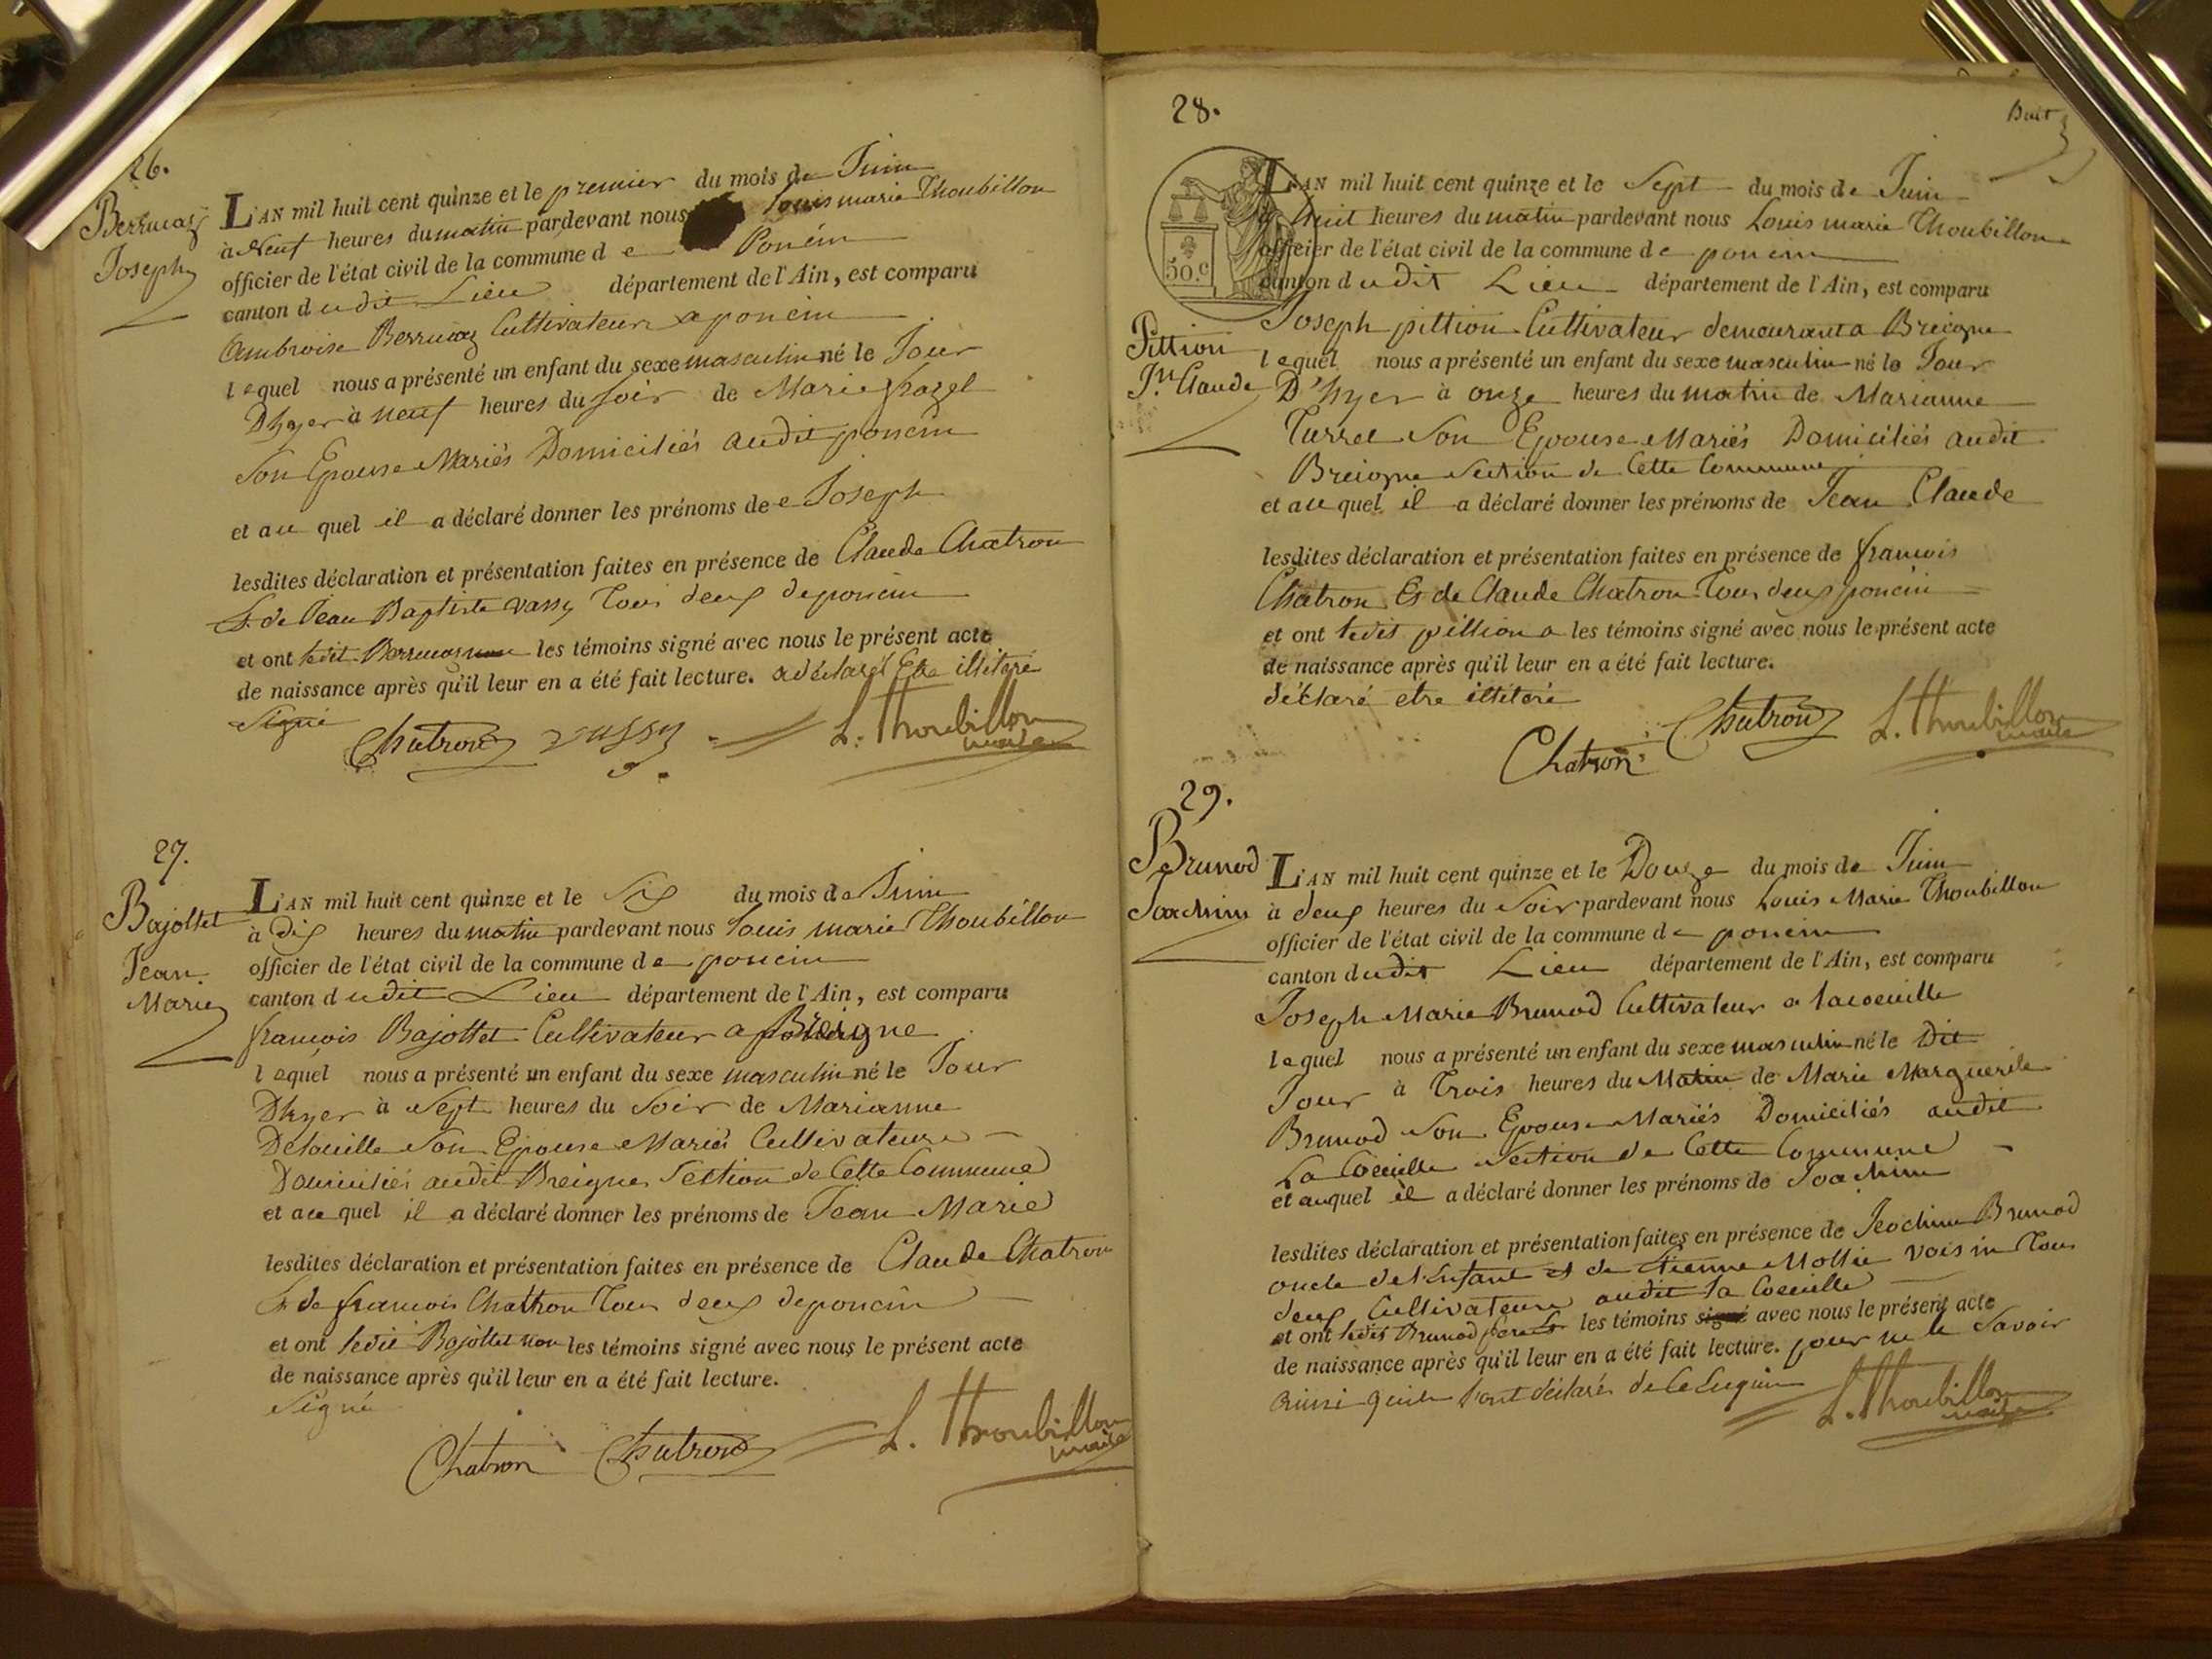 26.
Berruaz
Joseph
L'AN mil huit cent quinze et le premier du mois de Juin
à Neuf heures du matin pardevant nous Louis marie Thoubillon
officier de l'état civil de la commune de Poncin
canton dudit Lieu département de l'Ain, est comparu
Ambroise Berruaz Cultivateur a poncin
lequel nous a présenté un enfant du sexe masculin né le Jour
D'hyer à neuf heures du soir de Marie
Son Epouse Mariés Domiciliés audit poncin
et au quel il a déclaré donner les prénoms de Joseph
lesdites déclaration et présentation faites en présence de Claude Chatron
Et de Jean Baptiste vassy Tous deux de poncin
et ont ledit Berruaz les témoins signé avec nous le présent acte
de naissance après qu'il leur en a été fait lecture. a déclaré Etre illitéré
Signé
Chatron vussy L. Thoubillon
maire
27.
Bajollet
Jean
Marie
L'AN mil huit cent quinze et le Six du mois de Juin
à Dix heures du matin pardevant nous Louis marie Thoubillon
officier de l'état civil de la commune de poncin
canton dudit Lieu département de l'Ain, est comparu
françois Bajollet Cultivateur a Breigne
lequel nous a présenté un enfant du sexe masculin né le Jour
D'hyer à Sept heures du Soir de Marianne
Delouille Son Epouse Mariés Cultivateurs
Domiciliés audit Breigne Section de Cette Commune
et au quel il a déclaré donner les prénoms de Jean Marie
lesdites déclaration et présentation faites en présence de Claude Chatron
Et de françois Chattron Tous deux de poncin
et ont ledit Bajollet non les témoins signé avec nous le présent acte
de naissance après qu'il leur en a été fait lecture.
Signé
Chatron Chatron L. Thoubillon
maire
28.
50.c
Pittion
Jn. Claude
L'AN mil huit cent quinze et le Sept du mois de Juin
à huit heures du matin pardevant nous Louis marie Thoubillon
officier de l'état civil de la commune de poncin
canton dudit Lieu département de l'Ain, est comparu
Joseph pittion Cultivateur demeurant a Breigne
lequel nous a présenté un enfant du sexe masculin né le Jour
D'hyer à onze heures du matin de Marianne
Turrel Son Epouse Mariés Domiciliés audit
Breigne Section de Cette Commune
et au quel il a déclaré donner les prénoms de Jean Claude
lesdites déclaration et présentation faites en présence de francois
Chatron Et de Claude Chatron Tous deux poncin
et ont ledit pittion a les témoins signé avec nous le présent acte
de naissance après qu'il leur en a été fait lecture.
déclaré etre illitéré
Chatron Chatron L. Thoubillon
maire
29.
Brunod
Joachim
L'AN mil huit cent quinze et le Douze du mois de Juin
à deux heures du Soir pardevant nous Louis Marie Thoubillon
officier de l'état civil de la commune de poncin
canton dudit Lieu département de l'Ain, est comparu
Joseph Marie Brunod Cultivateur a lacoeuille
lequel nous a présenté un enfant du sexe masculin né le Dit
Jour à Trois heures du Matin de Marie Marguerite
Brunod Son Epouse Mariés Domiciliés audit
La Coeuille Section de Cette Commune
et auquel il a déclaré donner les prénoms de Joachim
lesdites déclaration et présentation faites en présence de Jeochim Brunod
oncle de l'Enfant et de Etienne Mollie voisin Tous
deux Cultivateurs audit la Coeuille
et ont ledit Brunod les témoins signé avec nous le présent acte
de naissance après qu'il leur en a été fait lecture. pour ne le Savoir
ainsi quils l'ont déclarés de Ce Enquis
L. Thoubillon
maire